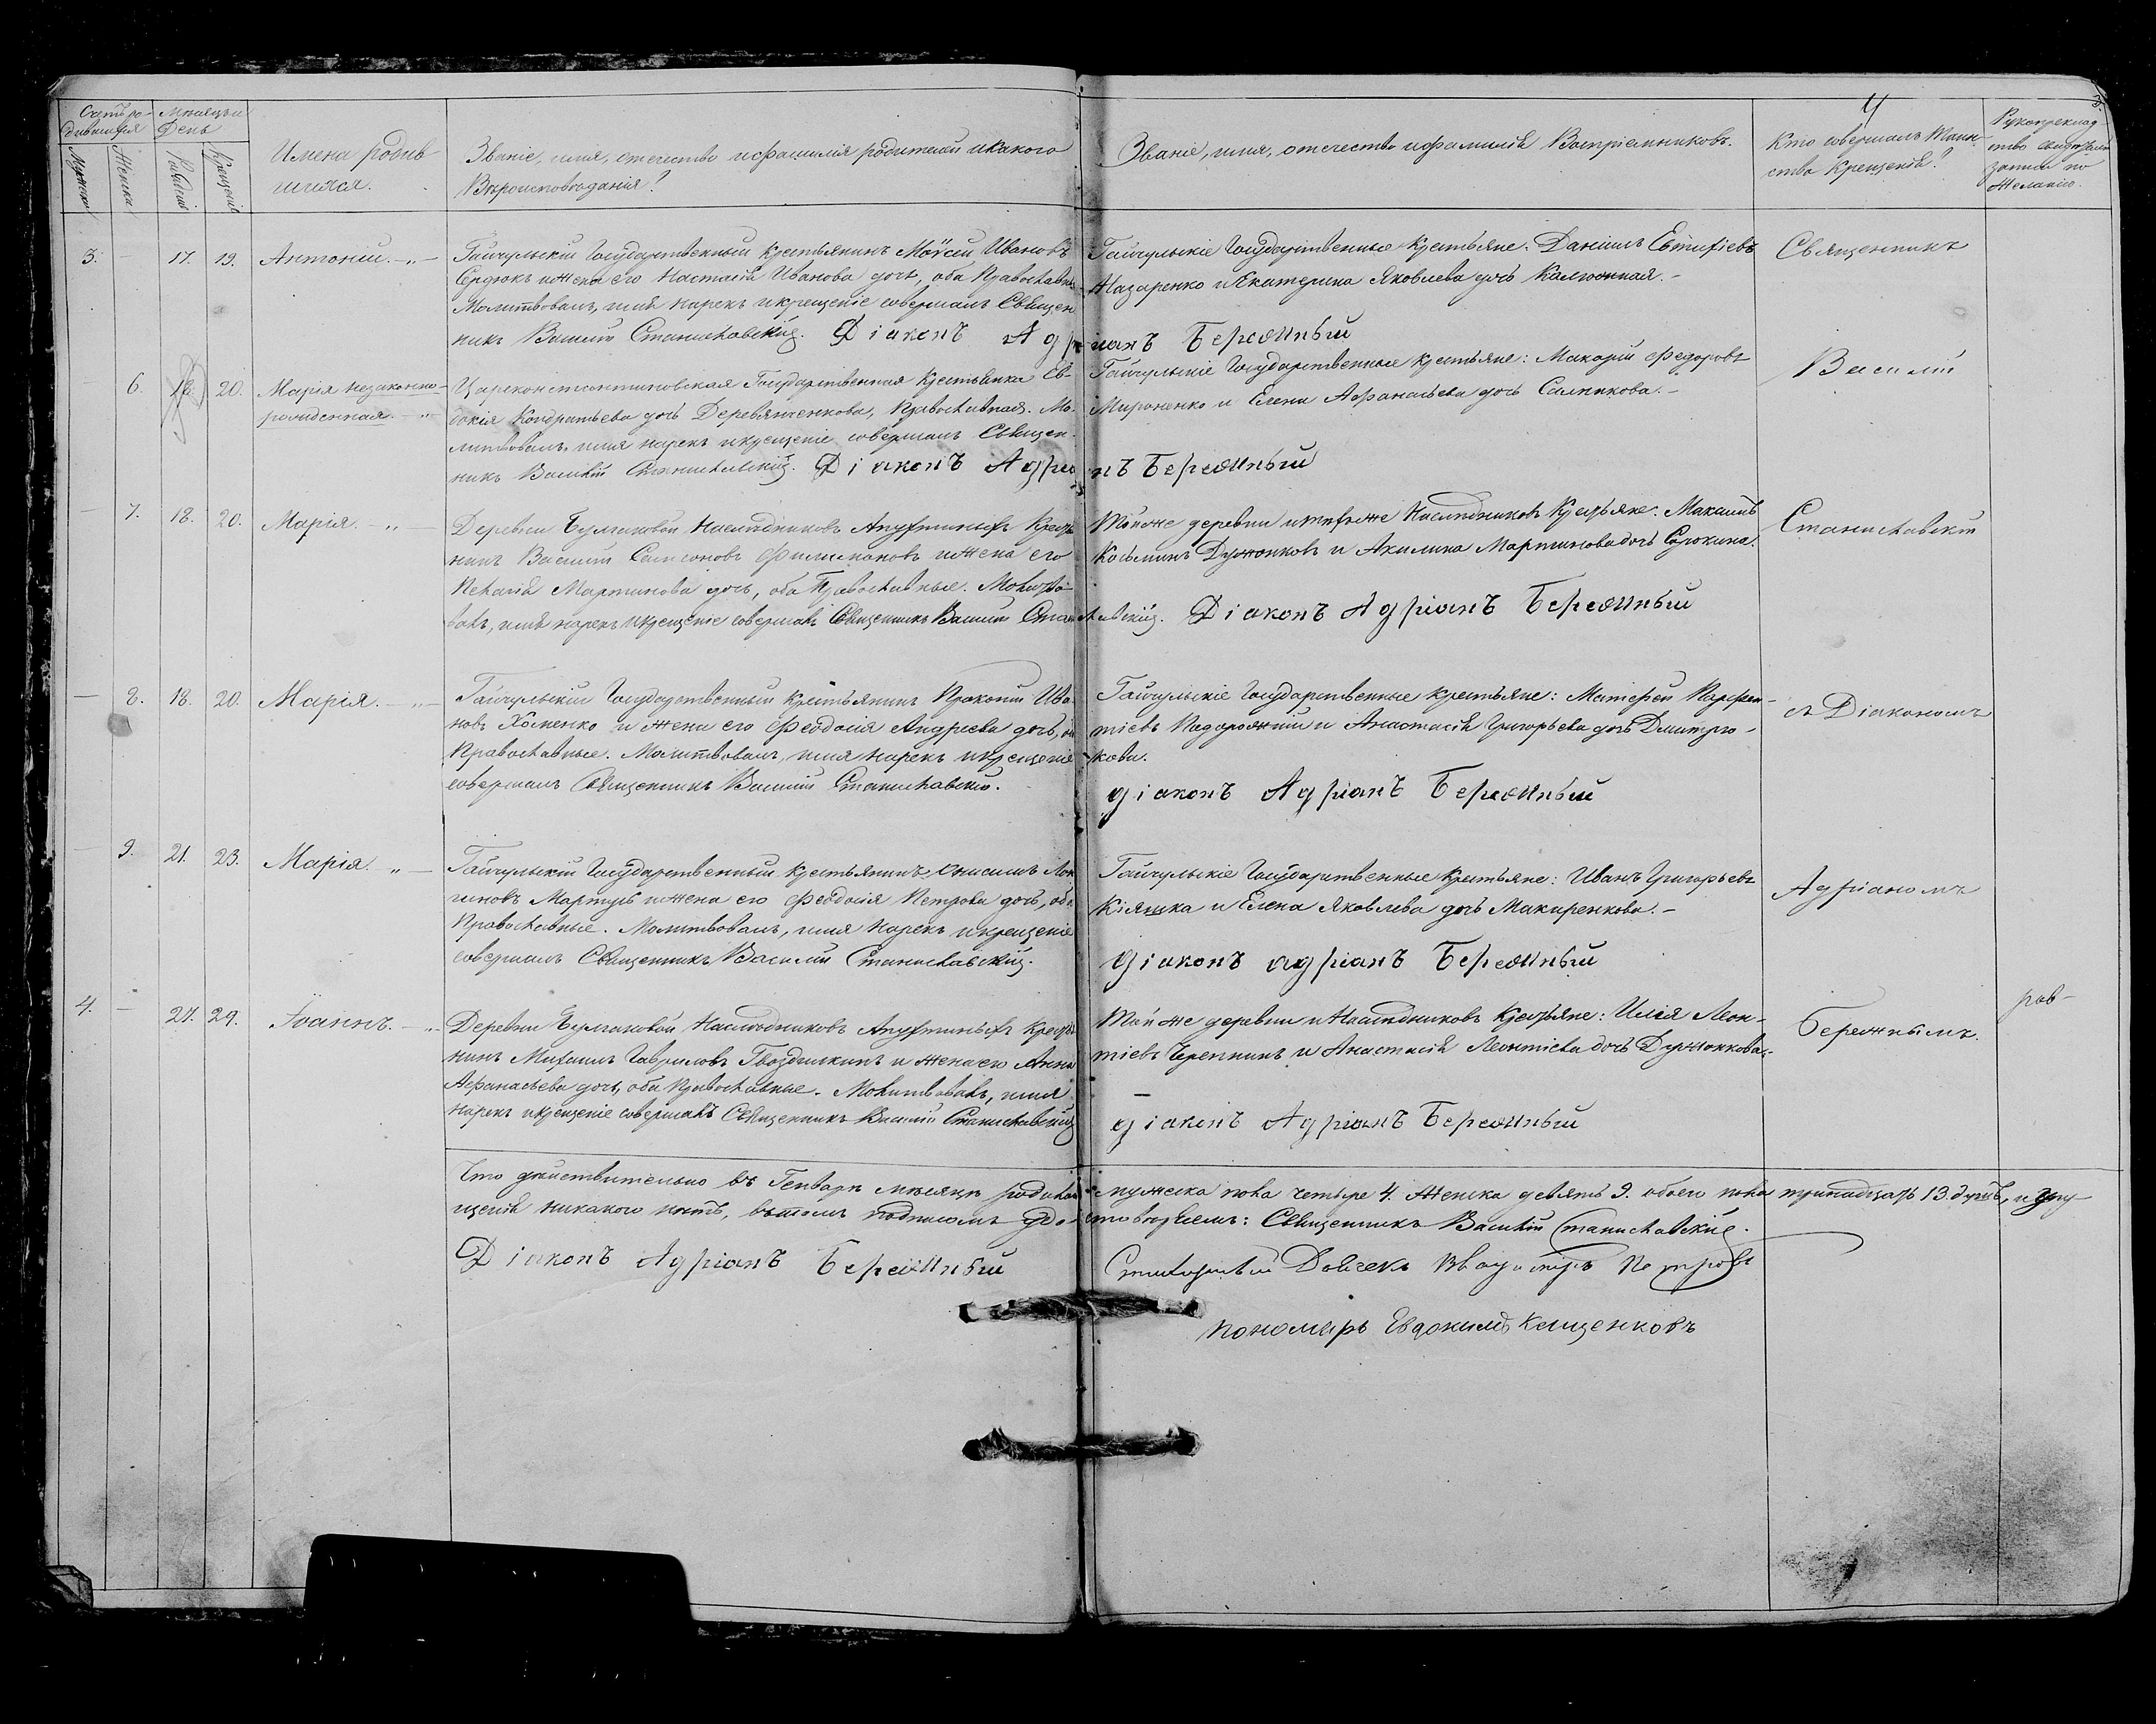 Счетъ ро-
дившихся
Мѣсяцъ и
День
Мужеска
Женска
Рожденія
Крещенія
Имена родив
шихся.
Званіе, имя, отечество и фамилія родителей и какого
Вѣроисповѣданія?
Званіе, имя, отечество и фамилія Воспріемниковъ.
4
Кто совершалъ Таин-
ство Крещенія?
3.
Рукоприклад-
ство свидѣтелей
записи по
Желанію.
3. 17. 19. Антоній.
Гайчульскій Государственный Крестьянинъ Моѵсей Ивановъ
Сердюкъ и жена его Настасія Иванова дочь, оба Православные
Молитвовалъ, имя нарекъ и крещеніе совершалъ Священ
никъ Василій Станиславскій. Діаконъ Адріанъ Бережный
Гайчульскіе Государственные Крестьяне: Даніилъ Евтифіевъ
Назаренко и Екатерина Яковлева дочь Калюжная.
Священникъ
6. 18. 20. Марія незаконно-
рожденная.
Цареконстантиновская Государственная Крестьянка Ев-
докія Кондратьева дочь Деревянченкова, Православная. Мо-
литвовалъ, имя нарекъ и крещеніе совершалъ Священ-
никъ Василій Станиславскій. Діаконъ Адріанъ Бережный
Гайчульскіе Государственные Крестьяне: Макарій Федоровъ
Мироненко и Елена Афанасьева дочь Сальникова.
Василій
7. 18. 20. Марія.
Деревни Наслѣдниковъ Крестья
нинъ Василій Филимоновъ и жена его
Пелагія Мартинова дочь, оба Православные. Молитво-
валъ, имя нарекъ и крещеніе совершалъ Священникъ Василій Станиславскій. Діаконъ Адріанъ Бережный
Той же деревни и тѣхъже Наслѣдниковъ Крестьяне: Максимъ
Козьминъ и Акилина Мартинова дочь Сорокина.
Станиславскій
8. 18. 20. Марія.
Гайчульскій Государственный Крестьянинъ Прокопій Ива
новъ Хоменко и жена его Феодосія Андреева дочь, оба
Православные. Молитвовалъ, имя нарекъ и крещеніе
совершалъ Священникъ Василій Станиславскій.
Гайчульскіе Государственные Крестьяне: Матфей Парфен-
тіевъ Подорожній и Анастасія Григорьева дочь Дмитрю-
кова.
діаконъ Адріанъ Бережный
съ Діакономъ
9. 21. 23. Марія.
Гайчульскій Государственный Крестьянинъ Онисимъ Лон
гиновъ и жена его Феодосія Петрова дочь, оба
Православные. Молитвовалъ, имя нарекъ и крещеніе
совершалъ Священникъ Василій Станиславскій.
Гайчульскіе Государственные Крестьяне: Иванъ Григорьевъ
Кіяшка и Елена Яковлева дочь Макаренкова.
діаконъ адріанъ Бережный
Адріаномъ
4. 27. 29. Іоаннъ.
Деревни Наслѣдниковъ Крестья
нинъ Михаилъ Гавриловъ Гвоздилкинъ и жена его Анна
Афанасьева дочь, оба Православные. Молитвовалъ, имя
нарекъ и крещеніе совершалъ Священникъ Василій Станиславскій
Той же деревни и Наслѣдниковъ Крестьяне: Илія Леон-
тіевъ Черепнинъ и Анастасія Леонтіева дочь
діаконъ Адріанъ Бережный
Бережнымъ.
Что дѣйствительно въ Генварѣ мѣсяцѣ родилось мужеска пола четыре 4. Женска девять 9. обоего пола тринадцать 13. душъ, и
никакого нѣтъ, въ томъ подписомъ удостовѣряемъ: Священникъ Василій Станиславскій.
Діаконъ Адріанъ Бережный
Петровъ
пономарь Евдокимъ Клищенковъ